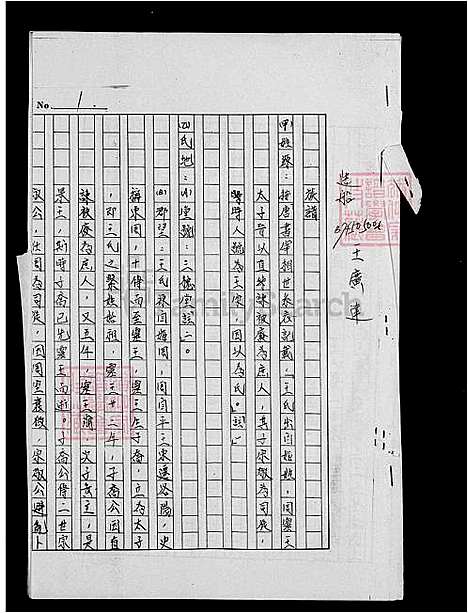 No. 1.
族譜
(甲)姓源：按唐書宰相世系表記載，「王氏出自姬姓，周靈王
太子晉以直諫被廢為庶人，其子宗敬為司徒，
時人號為王家，因以為氏。」
(乙)氏地：(A)堂號：三槐堂
(B)郡望：王氏系自姬周，周自平王東遷洛陽，史
稱東周，十傳而至靈王，靈王生子喬，立為太子
，即王氏之繫姓始祖，靈王廿二年，子喬公因直
諫被廢為庶人，又五年，靈王崩，次子貴立，是
景王，斯時子喬已先靈王而逝。子喬公傳二世宗
敬公，仕周為司徒，因周室衰微，宗敬公避亂
造船
王廣達
FamilySearch